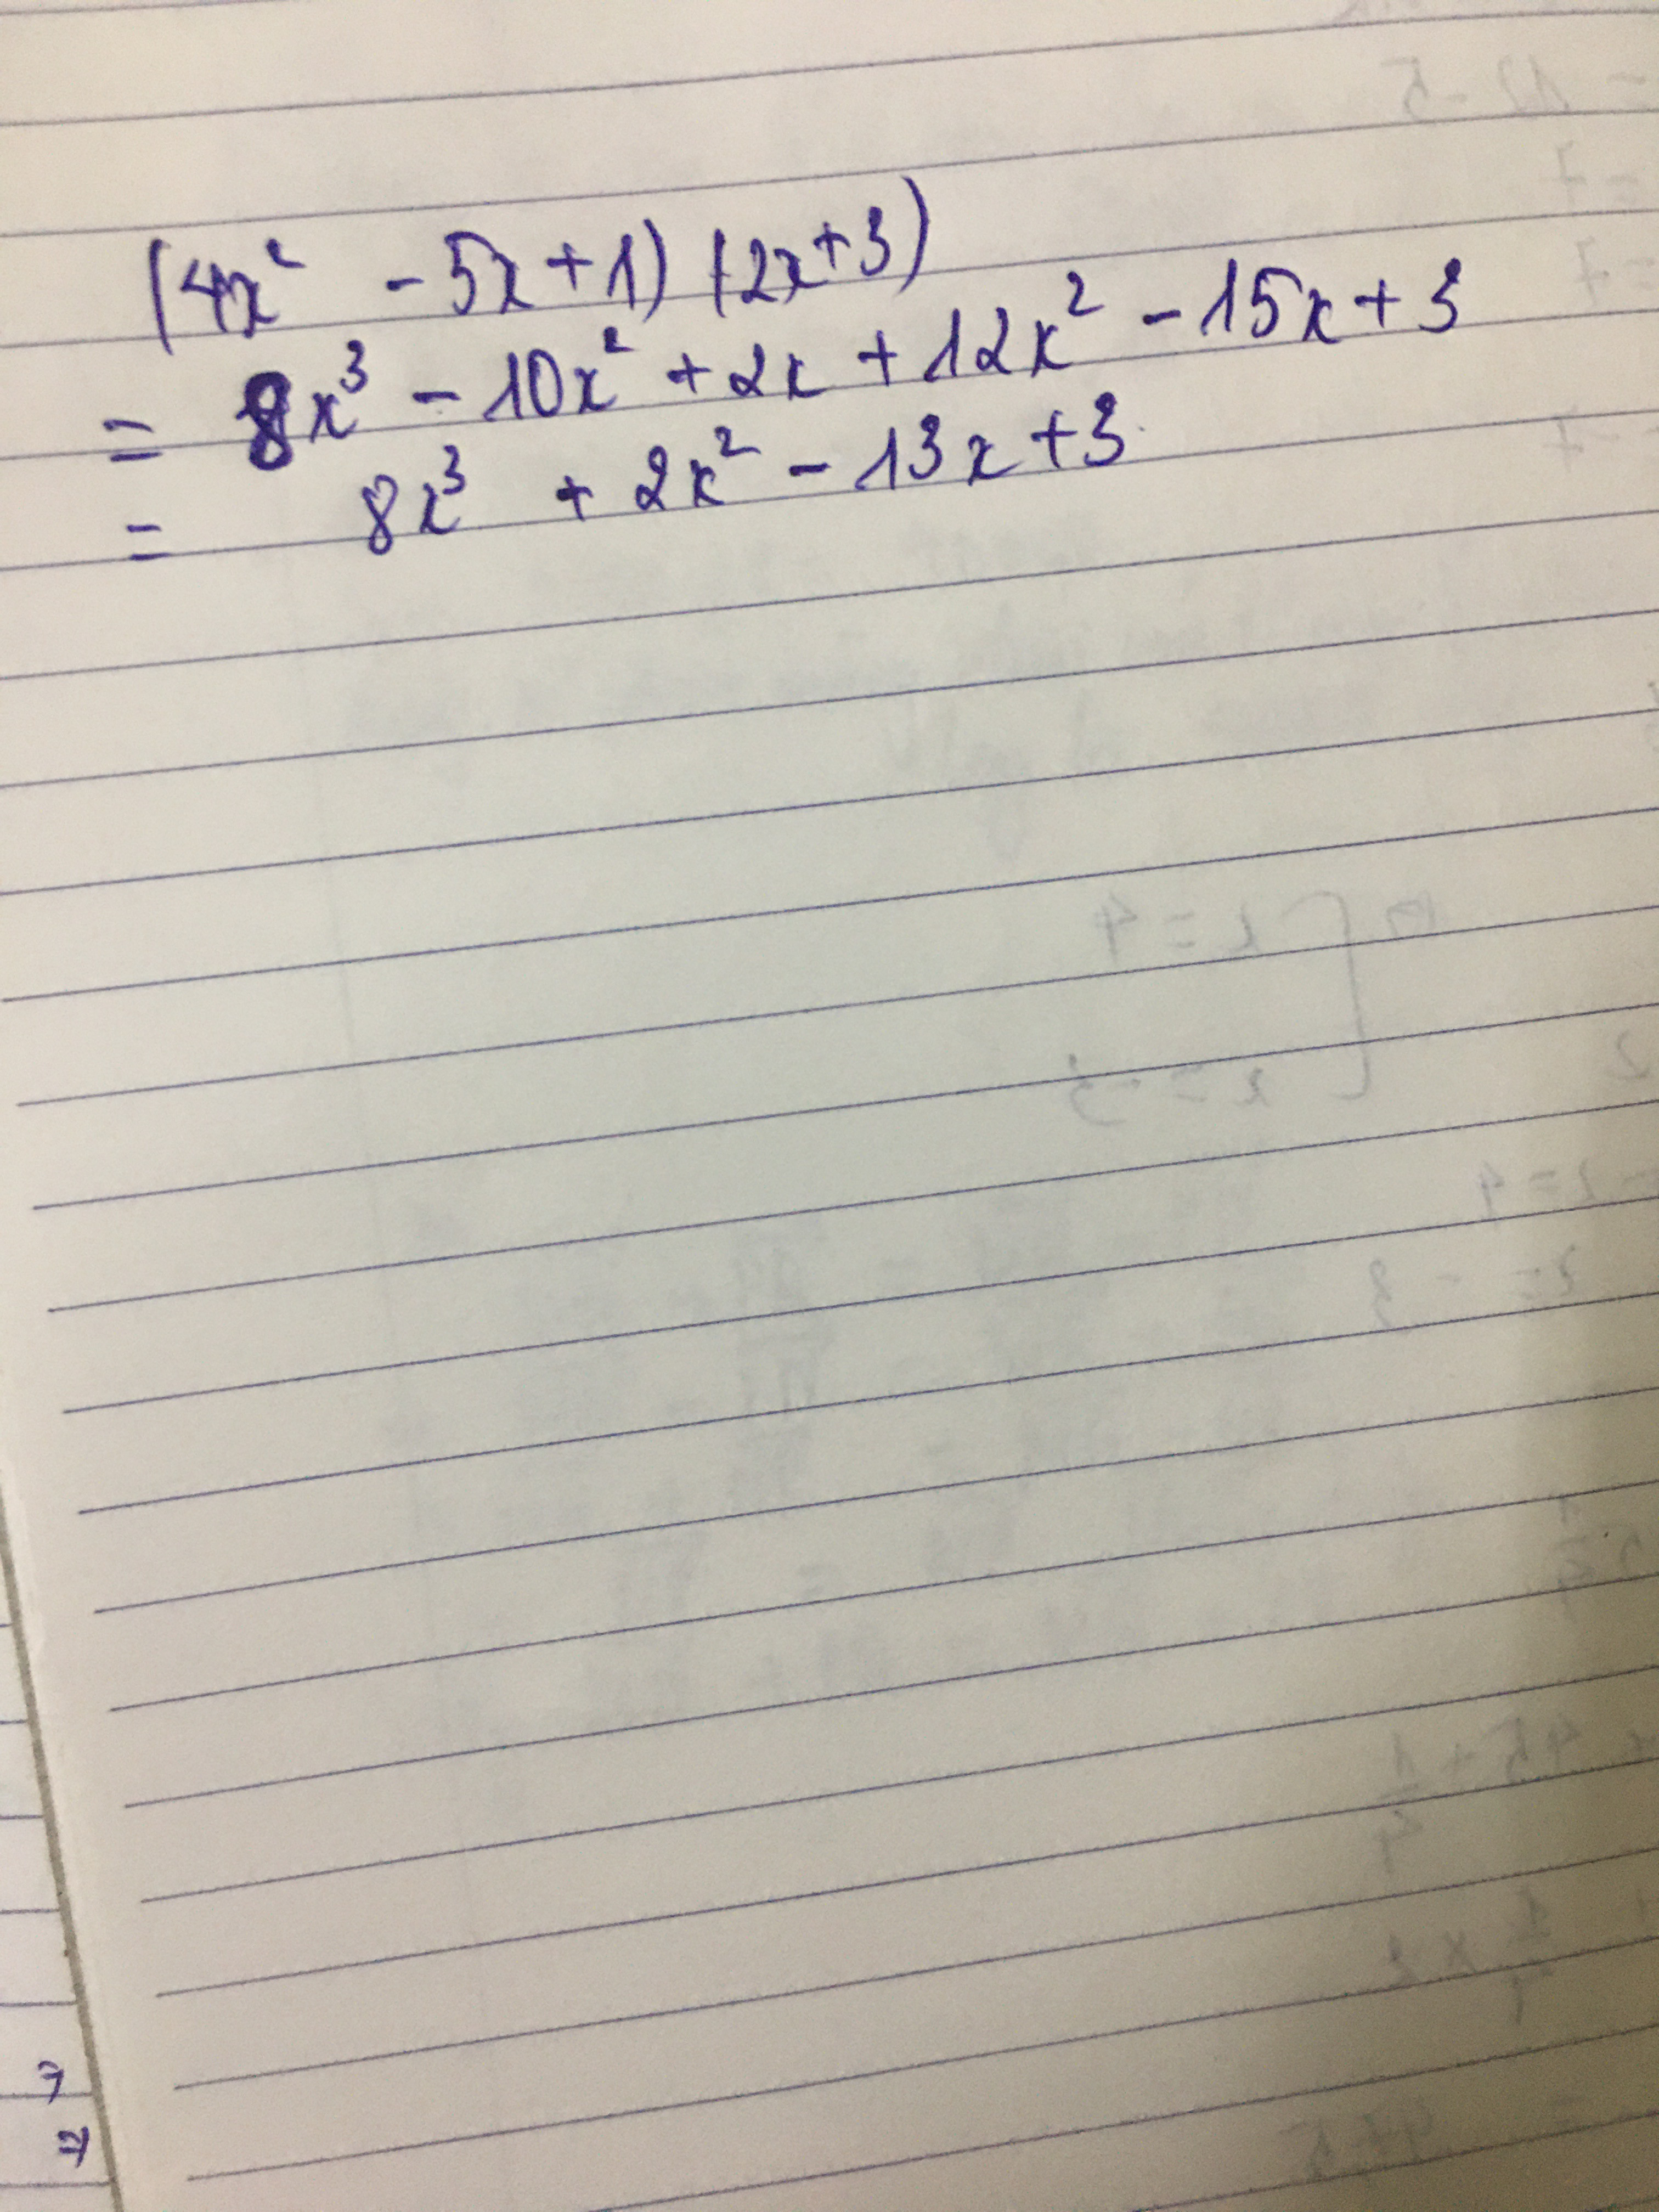 (4x² - 5x + 1) (2x + 3)
= 8x³ - 10x² + 2x + 12x² - 15x + 3
= 8x³ + 2x² - 13x + 3